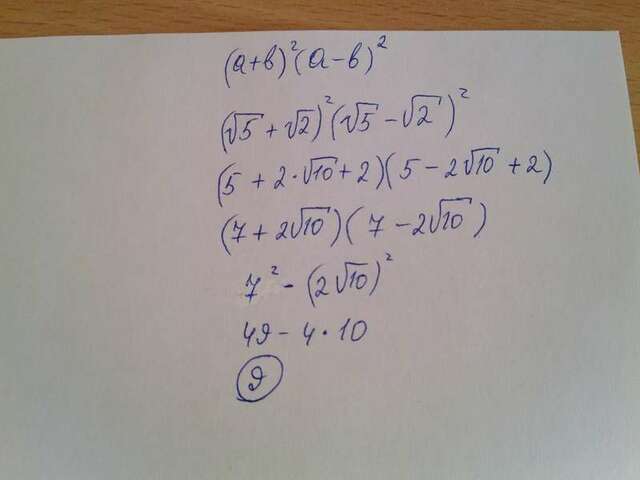 (a+b)²(a-b)²
(√5 + √2)²(√5 - √2)²
(5 + 2·√10 + 2)(5 - 2√10 + 2)
(7 + 2√10)(7 - 2√10)
7² - (2√10)²
49 - 4·10
9